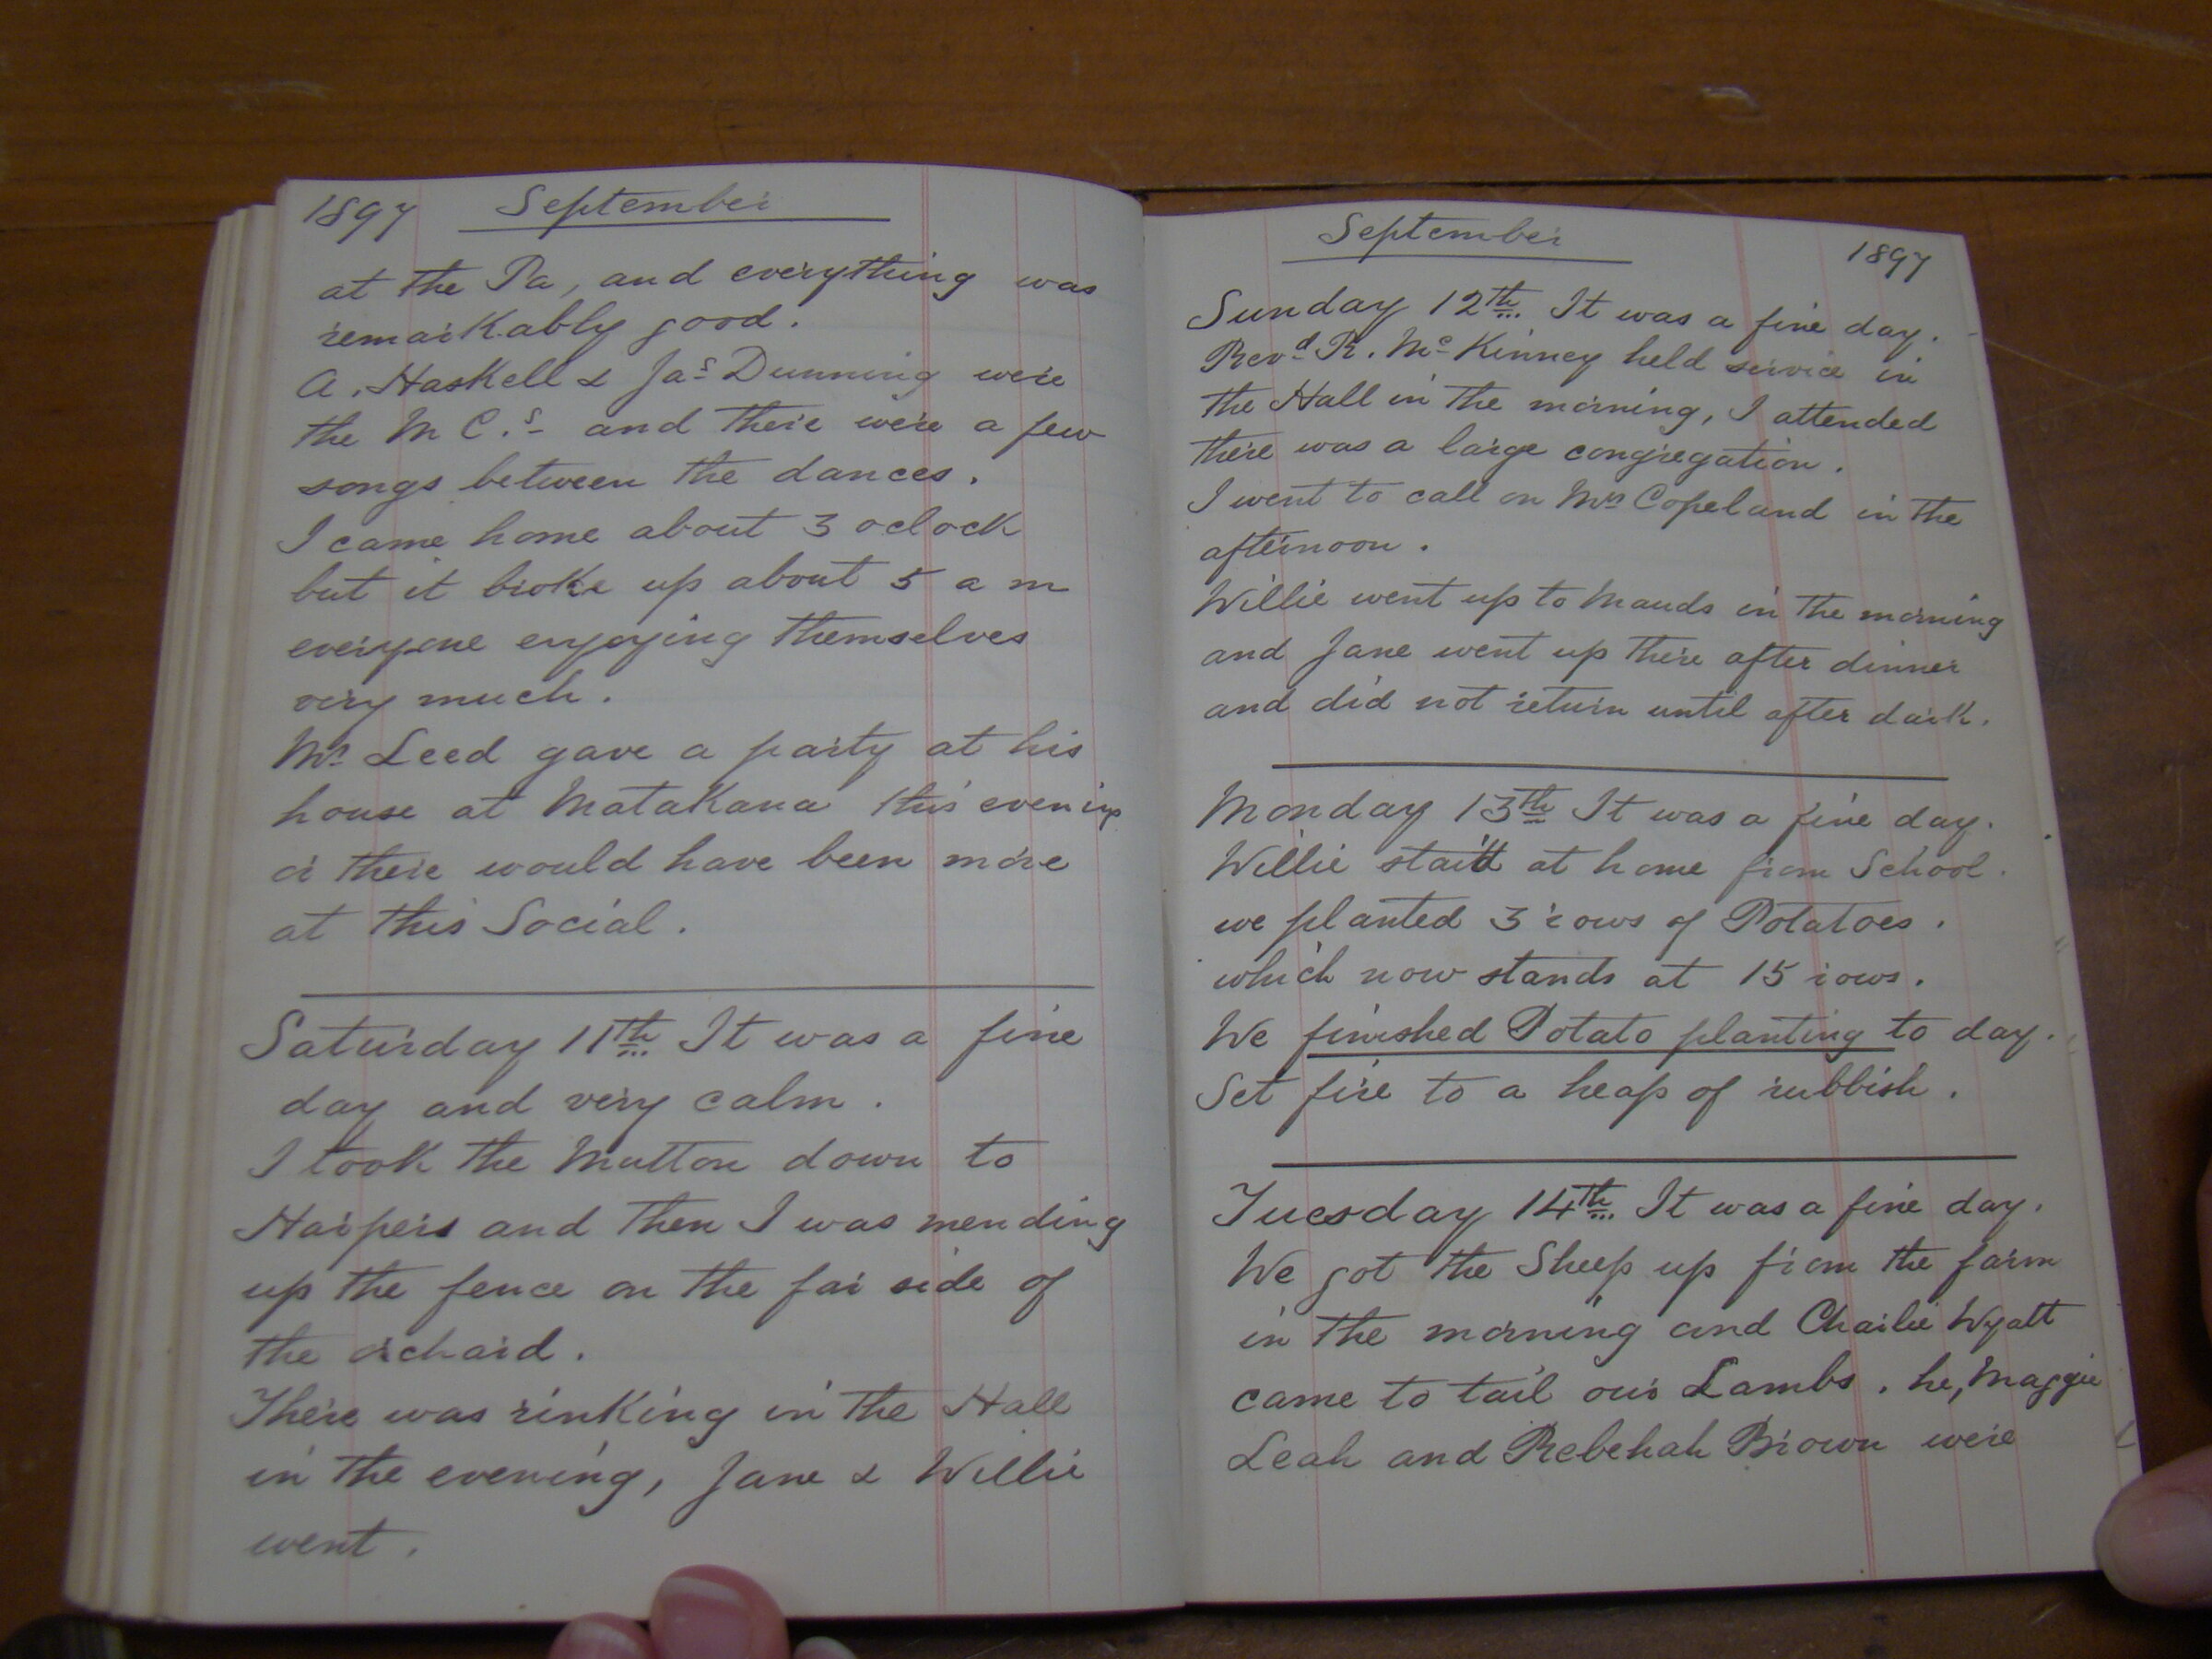 1897 September
at the Pa, and everything was
remarkably good.
A. Haskell & Jas Dunning were
the M C.s and there were a few
songs between the dances.
I came home about 3 oclock
but it broke up about 5 a m
everyone enjoying themselves
very much.
Mr Leed gave a party at his
house at Matakana this evening
or there would have been more
at this Social.
Saturday 11th It was a fine
day and very calm.
I took the Mutton down to
Harpers and then I was mending
up the fence on the far side of
the orchard.
There was rinking in the Hall
in the evening, Jane & Willie
went.
September 1897
Sunday 12th It was a fine day.
Revd R. McKinney held service in
the Hall in the morning, I attended
there was a large congregation.
I went to call on Mrs Copeland in the
afternoon.
Willie went up to Mauds in the morning
and Jane went up there after dinner
and did not return until after dark.
Monday 13th It was a fine day.
Willie at home from School.
we planted 3 rows of Potatoes.
which now stands at 15 rows.
We finished Potato planting to day.
Set fire to a heap of rubbish.
Tuesday 14th It was a fine day.
We got the Sheep up from the farm
in the morning and Charlie Wyatt
came to tail our Lambs. he, Maggie
Leah and Rebekah Brown were